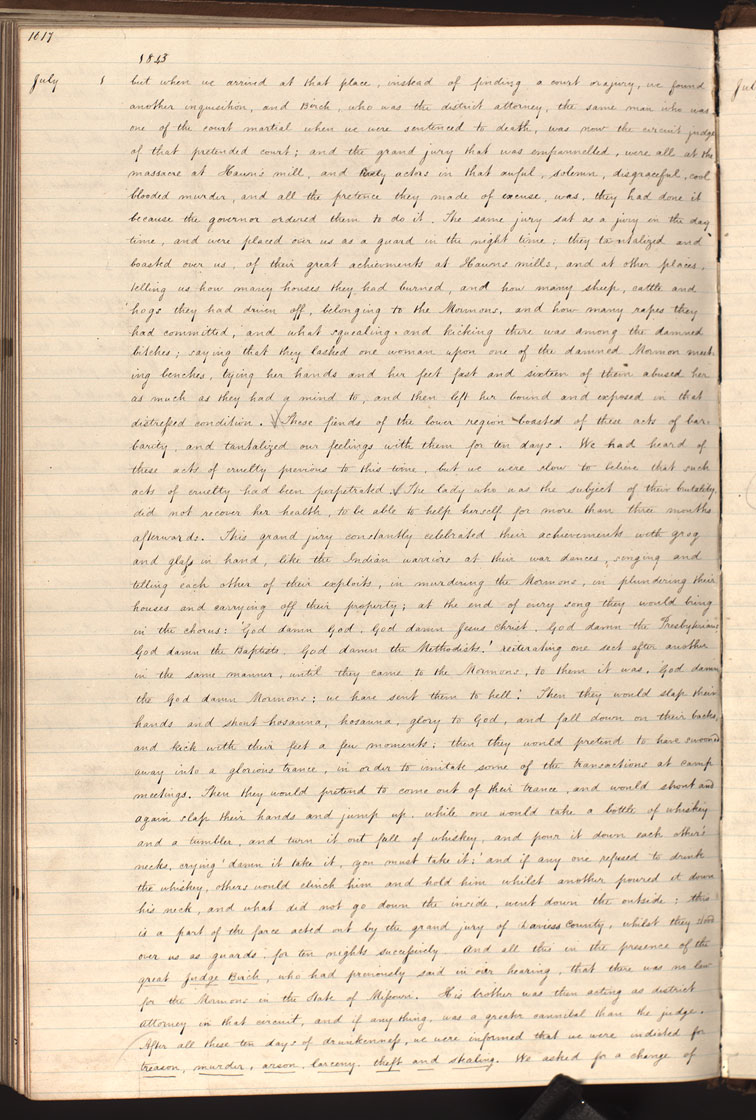 1617
1843
July 1 but when we arrived at that place, instead of finding a court or jury, we found
another inquisition, and Birch, who was the district attorney, the same man who was
one of the court martial when we were sentenced to death, was now the circuit judge
of that pretended court; and the grand jury that was empannelled, were all at the
massacre at Hawn's mill, and lively actors in that awful, solemn, disgraceful, cool
blooded murder, and all the pretence they made of excuse, was, they had done it
because the governor ordered them to do it. The same jury sat as a jury in the day
time, and were placed over us as a guard in the night time; they tantalized and
boasted over us, of their great achievments at Hawns mills, and at other places,
telling us how many houses they had burned, and how many sheep, cattle and
hogs they had driven off, belonging to the Mormons, and how many rapes they
had committed, and what squealing, and kicking there was among the damned
bitches; saying that they lashed one woman upon one of the damned Mormon meet-
ing benches, tying her hands and her feet fast and sixteen of them abused her
as much as they had a mind to, and then left her bound and exposed in that
distressed condition. These fiends of the lower region boasted of these acts of bar-
barity, and tantalized our feelings with them for ten days. We had heard of
these acts of cruelty previous to this time, but we were slow to believe that such
acts of cruelty had been perpetrated. The lady who was the subject of their brutality,
did not recover her health, to be able to help herself for more than three months
afterwards. This grand jury constantly celebrated their achievements with grog
and glass in hand, like the Indian warriors at their war dances, singing and
telling each other of their exploits, in murdering the Mormons, in plundering their
houses and carrying off their property; at the end of every song they would bring
in the chorus: 'God damn God, God damn Jesus Christ, God damn the Presbyterians
God damn the Baptists, God damn the Methodists!' reiterating one sect after another
in the same manner, until they came to the Mormons, to them it was, God damn
the God damn Mormons; we have sent them to hell! Then they would slap their
hands and shout hosanna, hosanna, glory to God, and fall down on their backs,
and kick with their feet a few moments; then they would pretend to have swooned
away into a glorious trance, in order to imitate some of the transactions at camp
meetings. Then they would pretend to come out of their trance, and would shout and
again slap their hands and jump up, while one would take a bottle of whiskey
and a tumbler, and turn it out full of whiskey, and pour it down each other's
necks, crying 'damn it take it, you must take it;' and if any one refused to drink
the whiskey, others would clinch him and hold him whilst another poured it down
his neck, and what did not go down the inside, went down the outside; this
is a part of the farce acted out by the grand jury of Daviess County, whilst they stood
over us as guards for ten nights successively. And all this in the presence of the
great Judge Birch, who had previously said in our hearing, that there was no law
for the Mormons in the State of Missouri. His brother was then acting as district
attorney in that circuit, and if any thing, was a greater cannibal than the judge.
After all these ten days of drunkenness, we were informed that we were indicted for
treason, murder, arson, larceny, theft and stealing. We asked for a change of
Jul